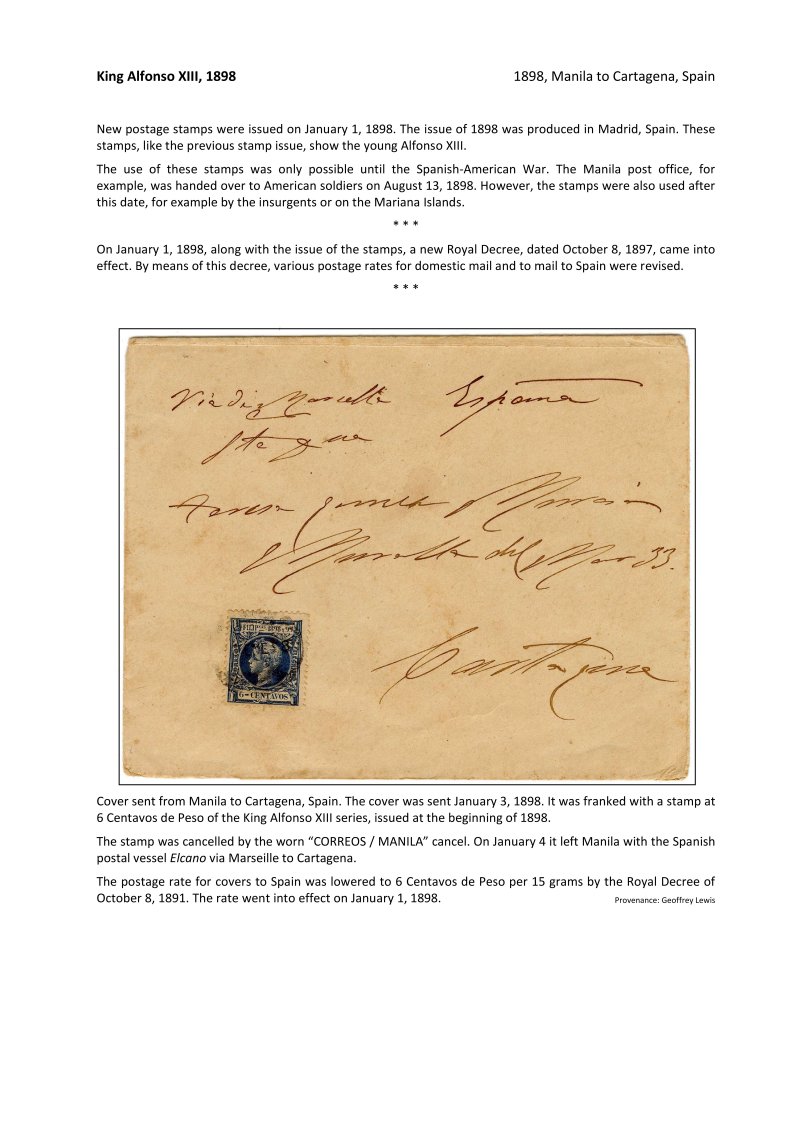 King Alfonso XIII, 1898
1898, Manila to Cartagena, Spain
New postage stamps were issued on January 1, 1898. The issue of 1898 was produced in Madrid, Spain. These
stamps, like the previous stamp issue, show the young Alfonso XIII.
The use of these stamps was only possible until the Spanish-American War. The Manila post office, for
example, was handed over to American soldiers on August 13, 1898. However, the stamps were also used after
this date, for example by the insurgents or on the Mariana Islands.
* * *
On January 1, 1898, along with the issue of the stamps, a new Royal Decree, dated October 8, 1897, came into
effect. By means of this decree, various postage rates for domestic mail and to mail to Spain were revised.
* * *
Via di Marsella España
Murcia
Muralla del Mar 33.
Cartagena
6-CENTAVOS
Cover sent from Manila to Cartagena, Spain. The cover was sent January 3, 1898. It was franked with a stamp at
6 Centavos de Peso of the King Alfonso XIII series, issued at the beginning of 1898.
The stamp was cancelled by the worn “CORREOS / MANILA” cancel. On January 4 it left Manila with the Spanish
postal vessel Elcano via Marseille to Cartagena.
The postage rate for covers to Spain was lowered to 6 Centavos de Peso per 15 grams by the Royal Decree of
October 8, 1891. The rate went into effect on January 1, 1898.
Provenance: Geoffrey Lewis